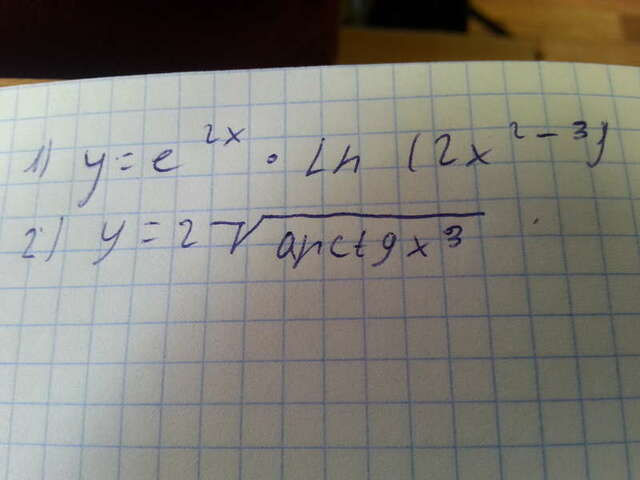 1) y = e^{2x} · Ln (2x^{2-3})
2) y = 2 √(arctg x^3)